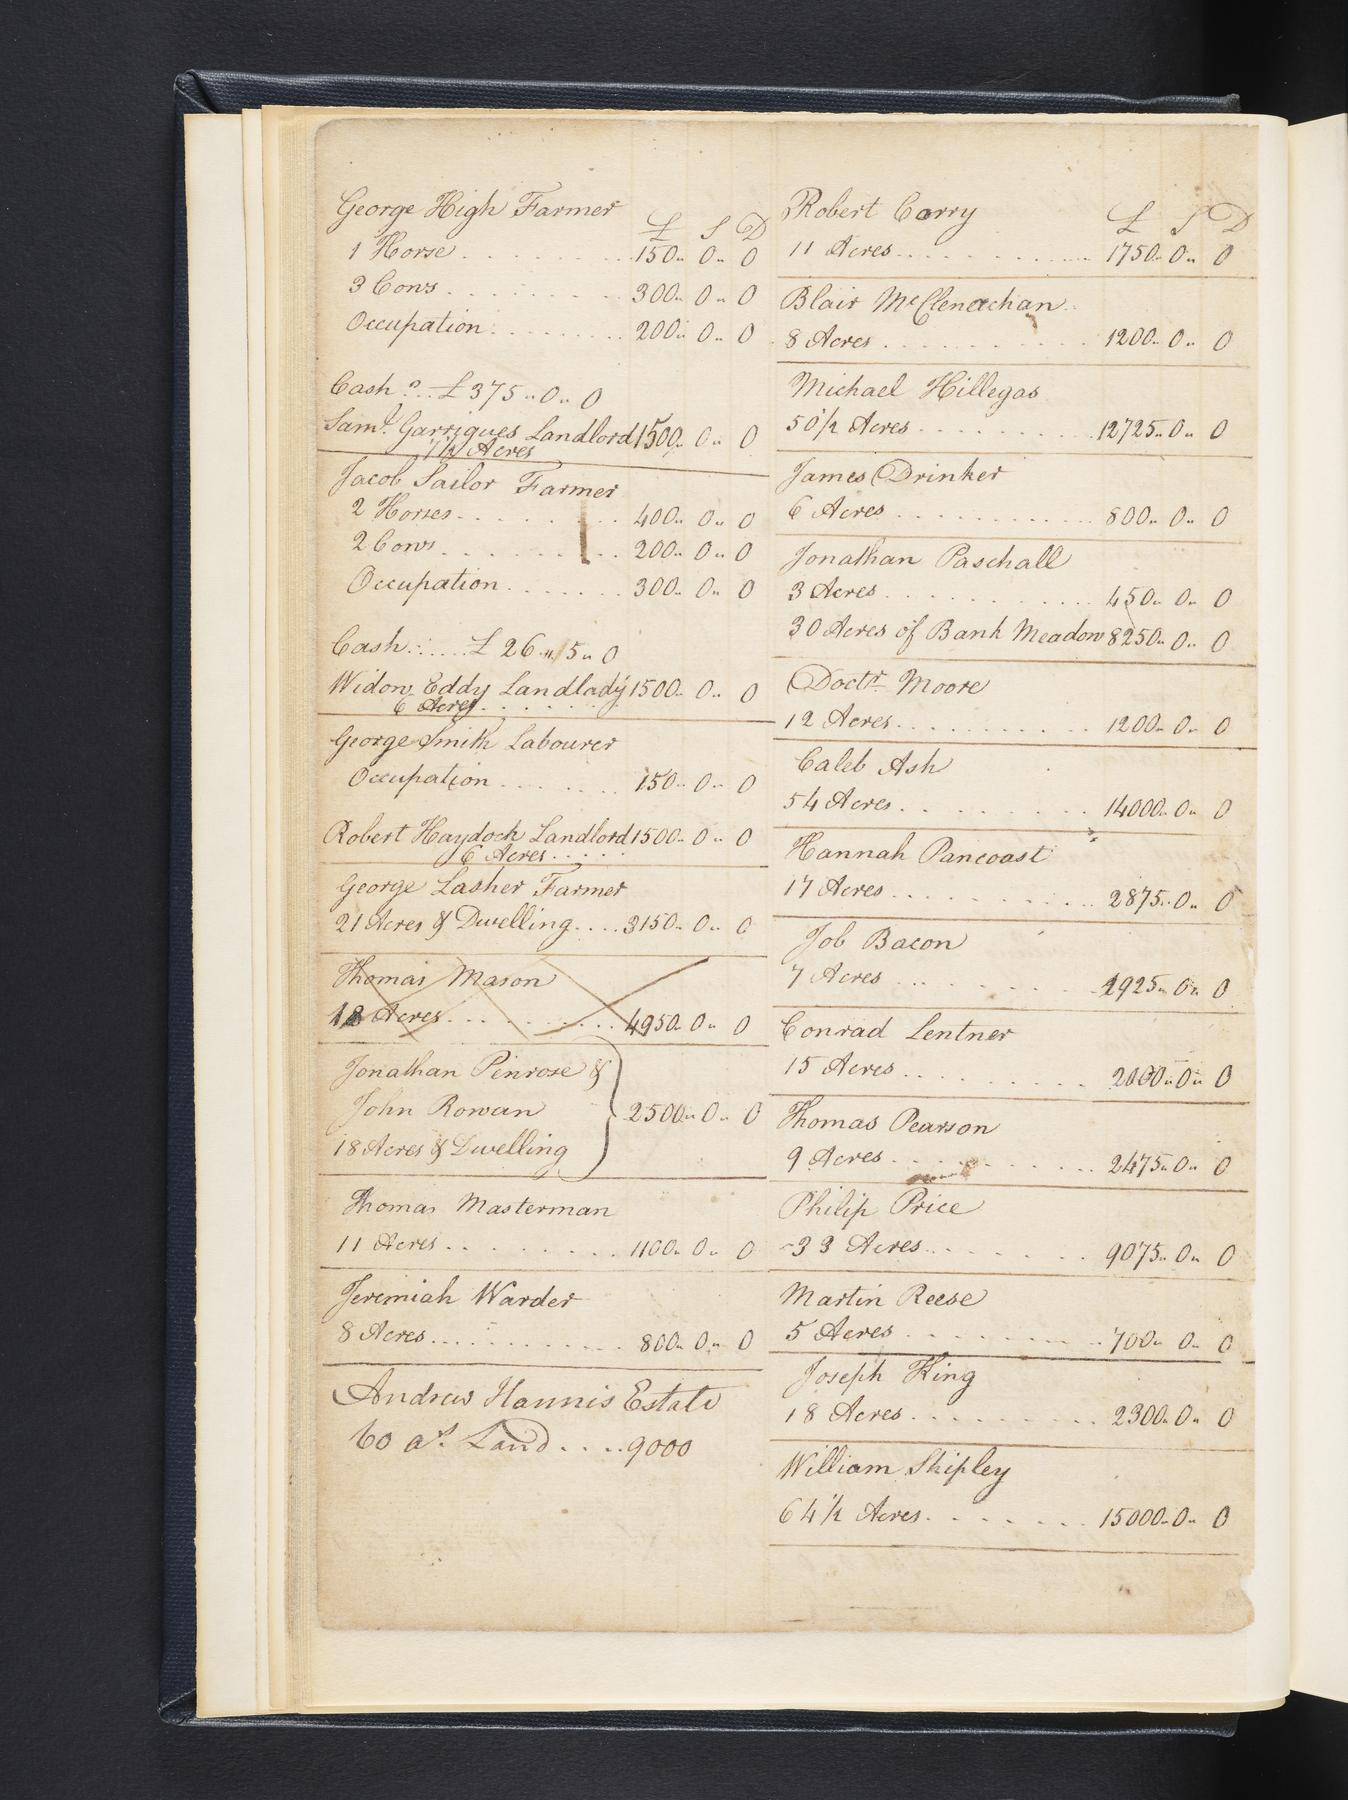 George High Farmer
£ S D
1 Horse . . . . . . . . 150.. 0.. 0
3 Cows . . . . . . . . 300.. 0.. 0
Occupation . . . . . . . 200.. 0.. 0
Cash ?. . £375.. 0.. 0
Saml. Garrigues Landlord 1500.. 0.. 0
7½ Acres
Jacob Sailor Farmer
2 Horses . . . . . . . . 400.. 0.. 0
2 Cows . . . . . . . . 200.. 0.. 0
Occupation . . . . . . . 300.. 0.. 0
Cash . . . . . £ 26.. 5.. 0
Widow Eddy Landlady 1500.. 0.. 0
6 Acres . . . . . .
George Smith Labourer
Occupation . . . . . . . 150.. 0.. 0
Robert Haydock Landlord 1500.. 0.. 0
6 Acres . . . . .
George Lasher Farmer
21 Acres & Dwelling . . . . 3150.. 0.. 0
Thomas Mason
18 Acres . . . . . . . . . 4950.. 0.. 0
Jonathan Penrose &
John Rowan 2500.. 0.. 0
18 Acres & Dwelling
Thomas Masterman
11 Acres . . . . . . . . . 1100.. 0.. 0
Jeremiah Warder
8 Acres . . . . . . . . . . 800.. 0.. 0
Andrew Hannis Estate
60 as. Land . . . . 9000
Robert Corry
£ S D
11 Acres . . . . . . . . . . 1750.. 0.. 0
Blair McClenachan
8 Acres . . . . . . . . . . 1200.. 0.. 0
Michael Hillegas
50½ Acres . . . . . . . . . 12725.. 0.. 0
James Drinker
6 Acres . . . . . . . . . . 800.. 0.. 0
Jonathan Paschall
3 Acres . . . . . . . . . . 450.. 0.. 0
30 Acres of Bank Meadow 8250.. 0.. 0
Doctr. Moore
12 Acres . . . . . . . . . . 1200.. 0.. 0
Caleb Ash
54 Acres . . . . . . . . . 14000.. 0.. 0
Hannah Pancoast
17 Acres . . . . . . . . . . 2875.. 0.. 0
Job Bacon
7 Acres . . . . . . . . . . 1925.. 0.. 0
Conrad Lentner
15 Acres . . . . . . . . . 2000.. 0.. 0
Thomas Pearson
9 Acres . . . . . . . . . . 2475.. 0.. 0
Philip Price
33 Acres . . . . . . . . . 9075.. 0.. 0
Martin Reese
5 Acres . . . . . . . . . . 700.. 0.. 0
Joseph King
18 Acres . . . . . . . . . 2300.. 0.. 0
William Shipley
64½ Acres . . . . . . . . 15000.. 0.. 0